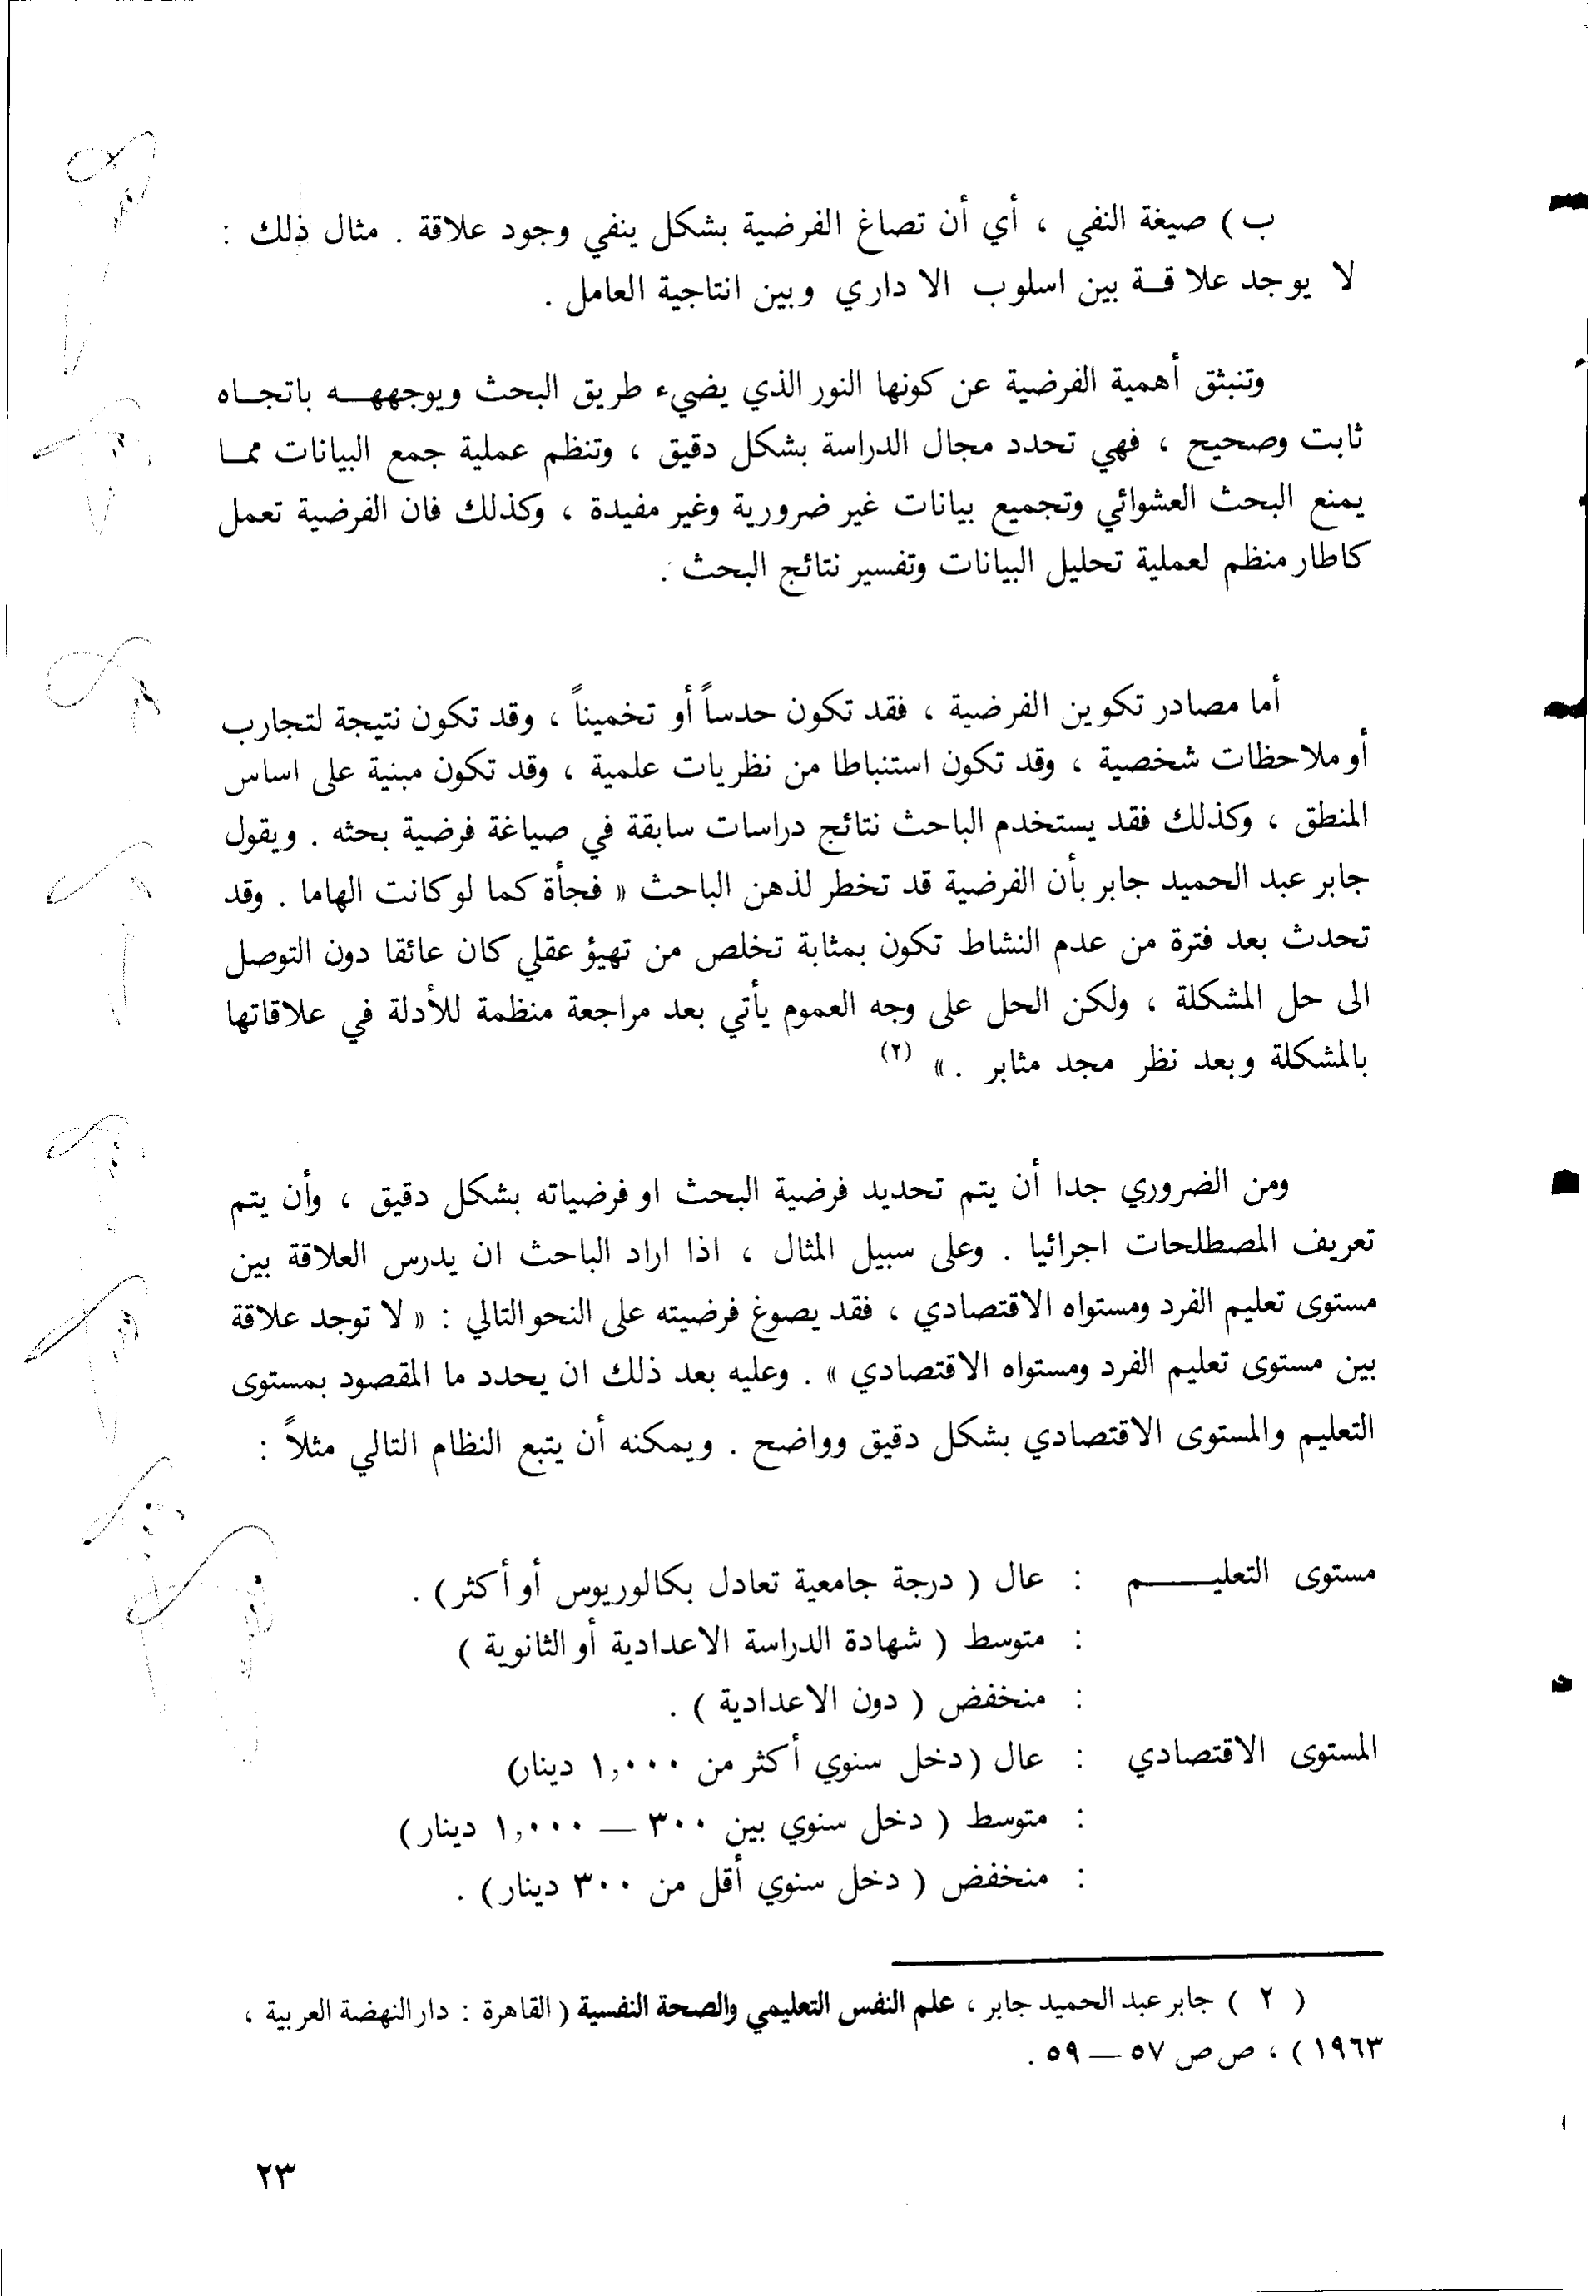 ب ) صيغة النفي ، أي أن تصاغ الفرضية بشكل ينفي وجود علاقة . مثال ذلك :
لا يوجد علاقة بين اسلوب الاداري وبين انتاجية العامل .
وتنبثق أهمية الفرضية عن كونها النور الذي يضيء طريق البحث ويوجهه باتجاه
ثابت وصحيح ، فهي تحدد مجال الدراسة بشكل دقيق ، وتنظم عملية جمع البيانات مما
يمنع البحث العشوائي وتجميع بيانات غير ضرورية وغير مفيدة ، وكذلك فان الفرضية تعمل
كاطار منظم لعملية تحليل البيانات وتفسير نتائج البحث .
أما مصادر تكوين الفرضية ، فقد تكون حدساً أو تخميناً ، وقد تكون نتيجة لتجارب
أو ملاحظات شخصية ، وقد تكون استنباطا من نظريات علمية ، وقد تكون مبنية على اساس
المنطق ، وكذلك فقد يستخدم الباحث نتائج دراسات سابقة في صياغة فرضية بحثه . ويقول
جابر عبد الحميد جابر بأن الفرضية قد تخطر لذهن الباحث « فجأة كما لو كانت الهاما . وقد
تحدث بعد فترة من عدم النشاط تكون بمثابة تخلص من تهيؤ عقلي كان عائقا دون التوصل
الى حل المشكلة ، ولكن الحل على وجه العموم يأتي بعد مراجعة منظمة للأدلة في علاقاتها
بالمشكلة وبعد نظر مجد مثابر . » (٢)
ومن الضروري جدا أن يتم تحديد فرضية البحث او فرضياته بشكل دقيق ، وأن يتم
تعريف المصطلحات اجرائيا . وعلى سبيل المثال ، اذا اراد الباحث ان يدرس العلاقة بين
مستوى تعليم الفرد ومستواه الاقتصادي ، فقد يصوغ فرضيته على النحو التالي : « لا توجد علاقة
بين مستوى تعليم الفرد ومستواه الاقتصادي » . وعليه بعد ذلك ان يحدد ما المقصود بمستوى
التعليم والمستوى الاقتصادي بشكل دقيق وواضح . ويمكنه أن يتبع النظام التالي مثلاً :
مستوى التعليم : عال ( درجة جامعية تعادل بكالوريوس أو أكثر ) .
: متوسط ( شهادة الدراسة الاعدادية أو الثانوية )
: منخفض ( دون الاعدادية ) .
المستوى الاقتصادي : عال (دخل سنوي أكثر من ١,٠٠٠ دينار)
: متوسط ( دخل سنوي بين ٣٠٠ — ١,٠٠٠ دينار )
: منخفض ( دخل سنوي أقل من ٣٠٠ دينار ) .
( ٢ ) جابر عبد الحميد جابر ، علم النفس التعليمي والصحة النفسية ( القاهرة : دار النهضة العربية ،
١٩٦٣ ) ، ص ص ٥٧ — ٥٩ .
٢٣